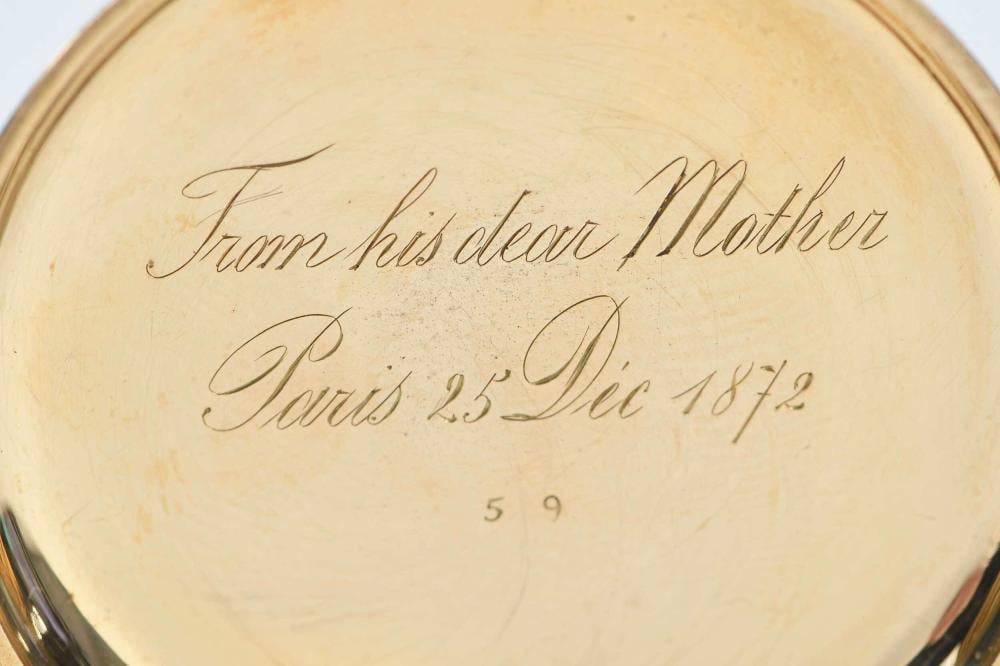 From his dear Mother
Paris 25 Déc 1872
5 9